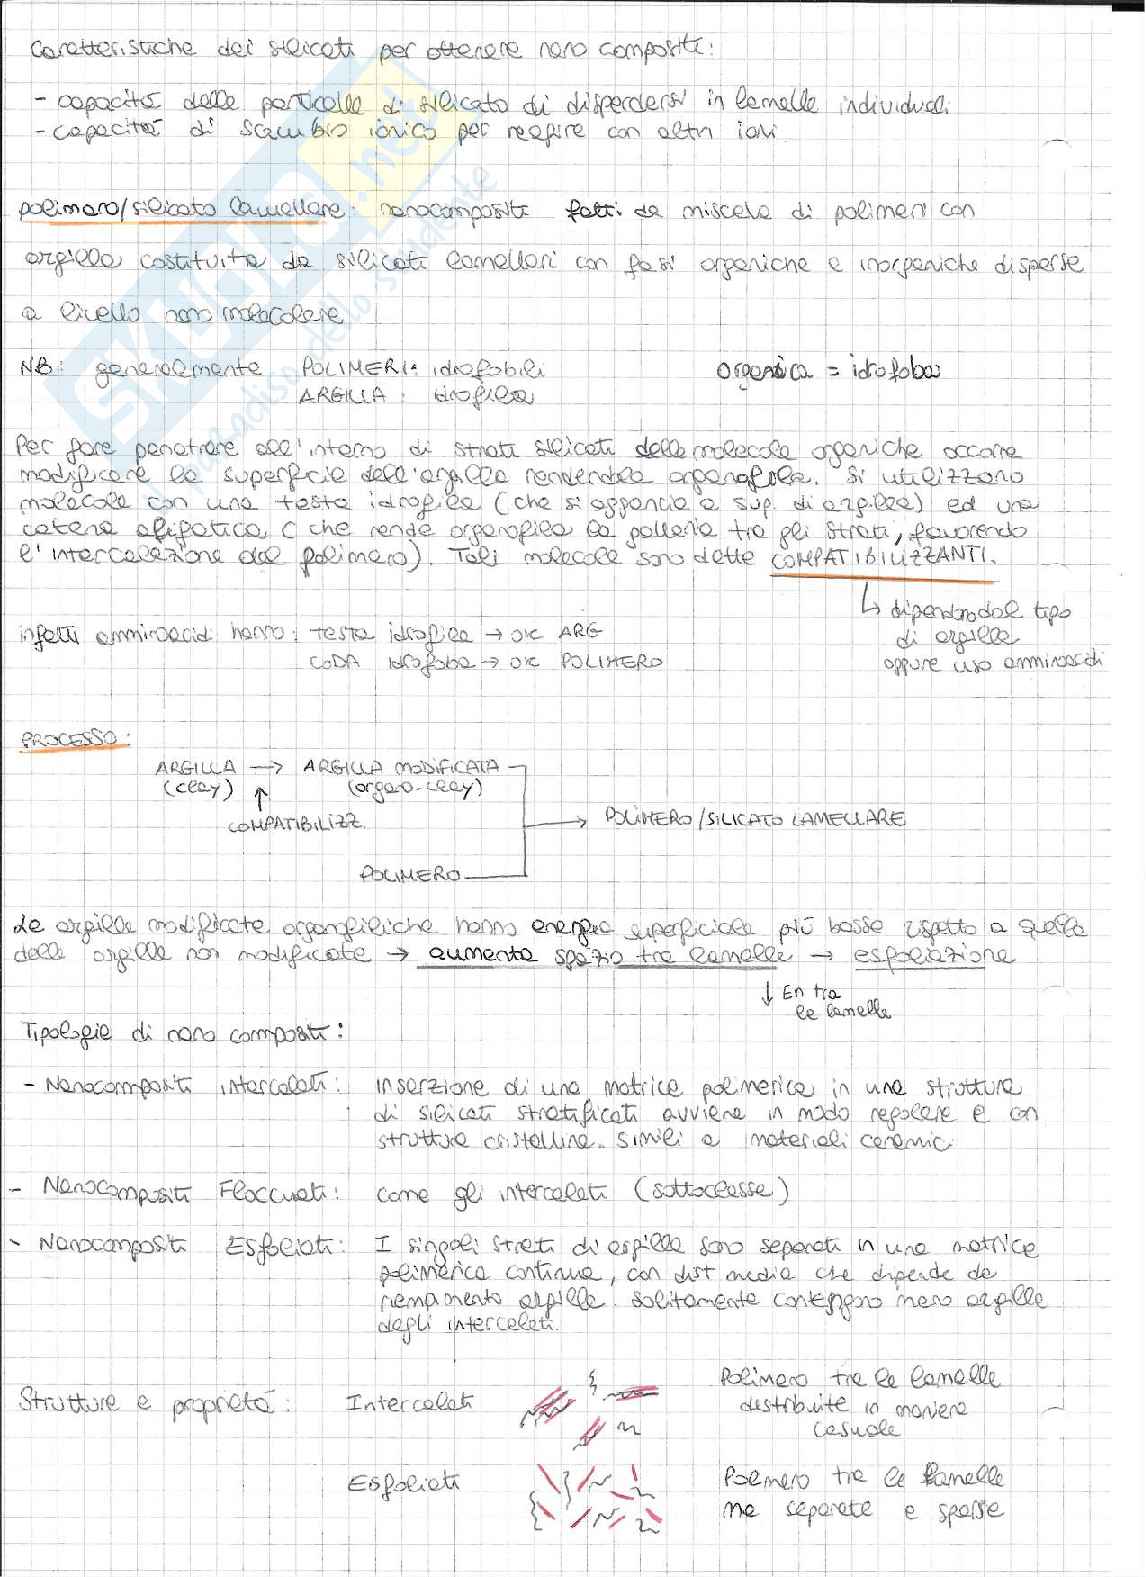 Caratteristiche dei silicati per ottenere nano compositi:
- capacità delle particelle di silicato di disperdersi in lamelle individuali
- capacità di scambio ionico per reagire con altri ioni
polimero/silicato lamellare: nanocompositi fatti da miscela di polimeri con
argilla costituita da silicati lamellari con fasi organiche e inorganiche disperse
a livello nano molecolare
NB: generalmente POLIMERI: idrofobili organica = idrofoba
ARGILLA: idrofila
Per fare penetrare all'interno di strati silicati delle molecole organiche occorre
modificare la superficie dell'argilla rendendola organofila. Si utilizzano
molecole con una testa idrofila (che si aggancia a sup. di argilla) ed una
catena alifatica (che rende organofila la galleria tra gli strati, favorendo
l'intercalazione del polimero). Tali molecole sono dette COMPATIBILIZZANTI.
↳ dipendono dal tipo
di argilla
oppure uso amminoacidi
infatti amminoacidi hanno: testa idrofila → ok ARG
CODA idrofoba → ok POLIMERO
PROCESSO:
ARGILLA → ARGILLA MODIFICATA
(clay) ↑ (organo-clay)
COMPATIBILIZZ.
→ POLIMERO/SILICATO LAMELLARE
POLIMERO
Le argille modificate organofiliche hanno energia superficiale più bassa rispetto a quella
delle argille non modificate → aumenta spazio tra lamelle → esfoliazione
↓ En tra
le lamelle
Tipologie di nano compositi:
- Nanocompositi intercalati: inserzione di una matrice polimerica in una struttura
di silicati stratificati avviene in modo regolare e con
struttura cristallina. Simili a materiali ceramici
- Nanocompositi Floccuati: come gli intercalati (sottoclasse)
- Nanocompositi Esfoliati: I singoli strati di argilla sono separati in una matrice
polimerica continua, con dist media che dipende da
riempimento argilla. Solitamente contengono meno argilla
degli intercalati.
Strutture e proprietà: Intercalati Polimero tra le lamelle
distribuite in maniera
casuale
Esfoliati Polimero tra le lamelle
ma separate e sparse
SKUOLA.net
paradiso dello studente